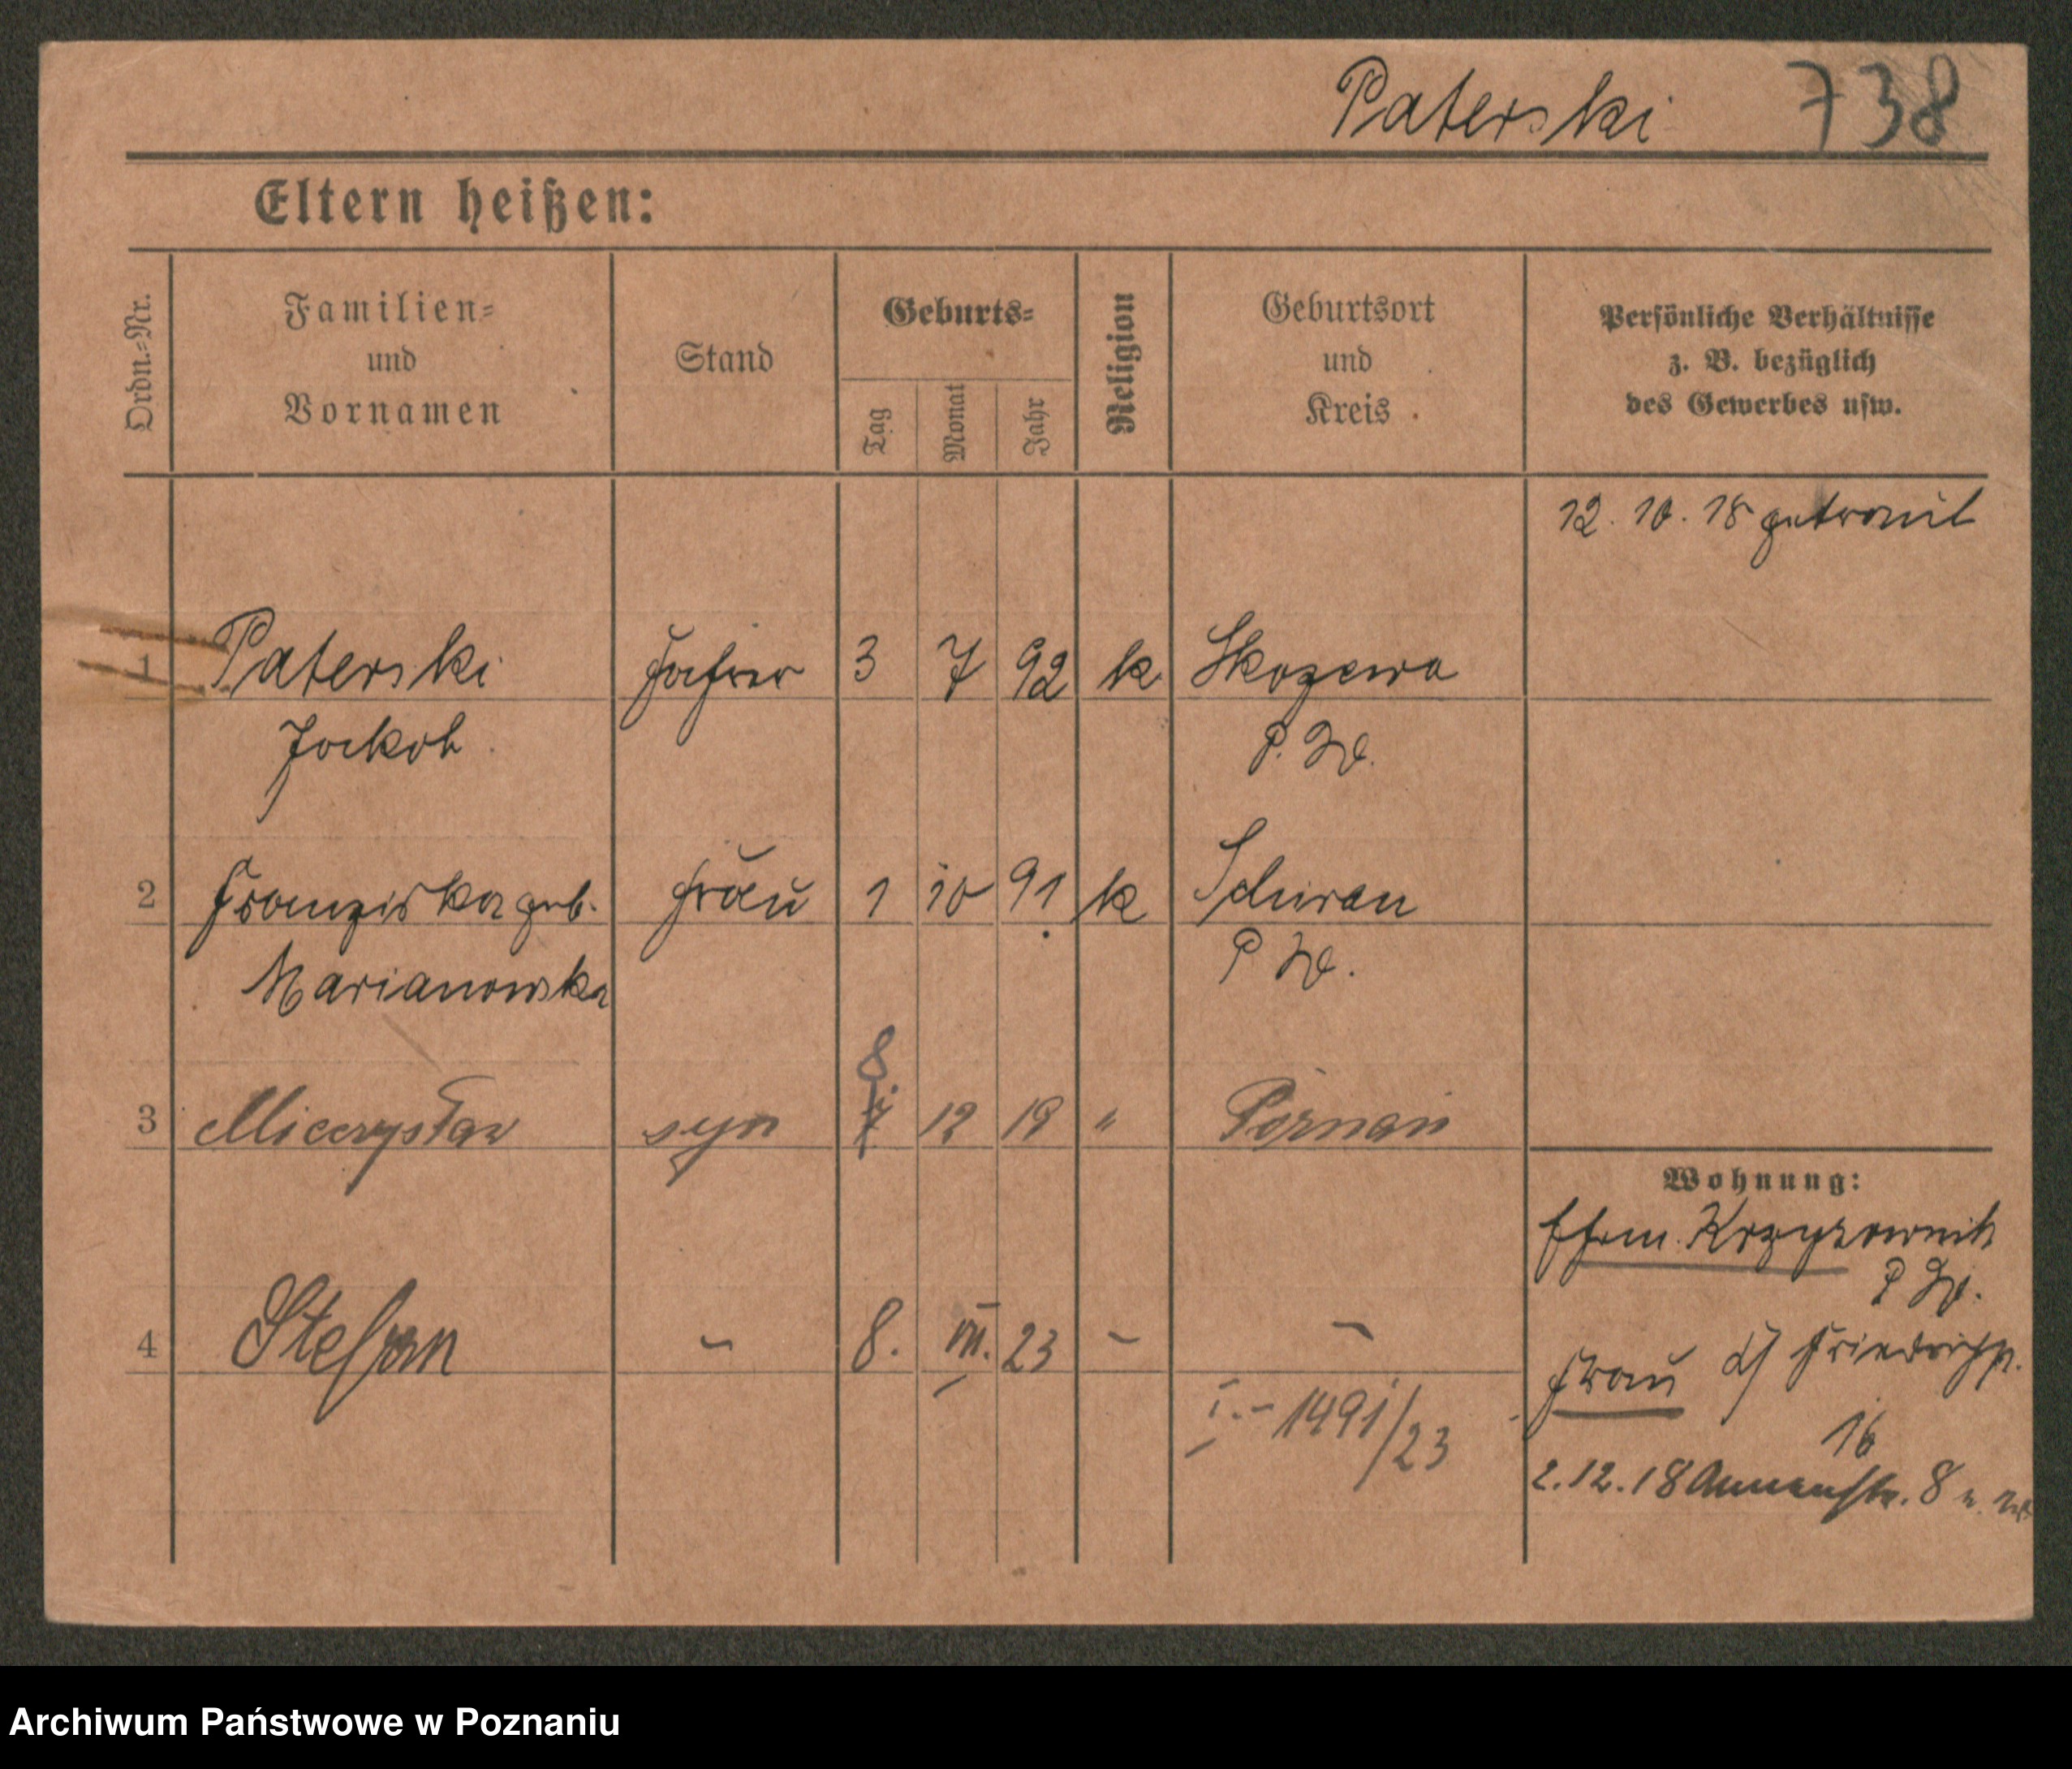 Paterski 738
Eltern heißen:
Ordn.-Nr.
Familien=
und
Vornamen
Stand
Geburts=
Tag
Monat
Jahr
Religion
Geburtsort
und
Kreis
Persönliche Verhältnisse
z. B. bezüglich
des Gewerbes usw.
12. 10. 18 getraut
1 Paterski 3 7 92 k Skozewa
Jackob P. W.
2 Franziska geb. Frau 1 10 91 k
Marianowska P W.
8
3 Mieczysław syn 12 19 " Poznań
Wohnung:
P W.
4 Stefan - 8. VII. 23 - -
Frau Friedrichstr.
16
I. - 1491/23
2. 12. 18 Annenstr. 8
Archiwum Państwowe w Poznaniu